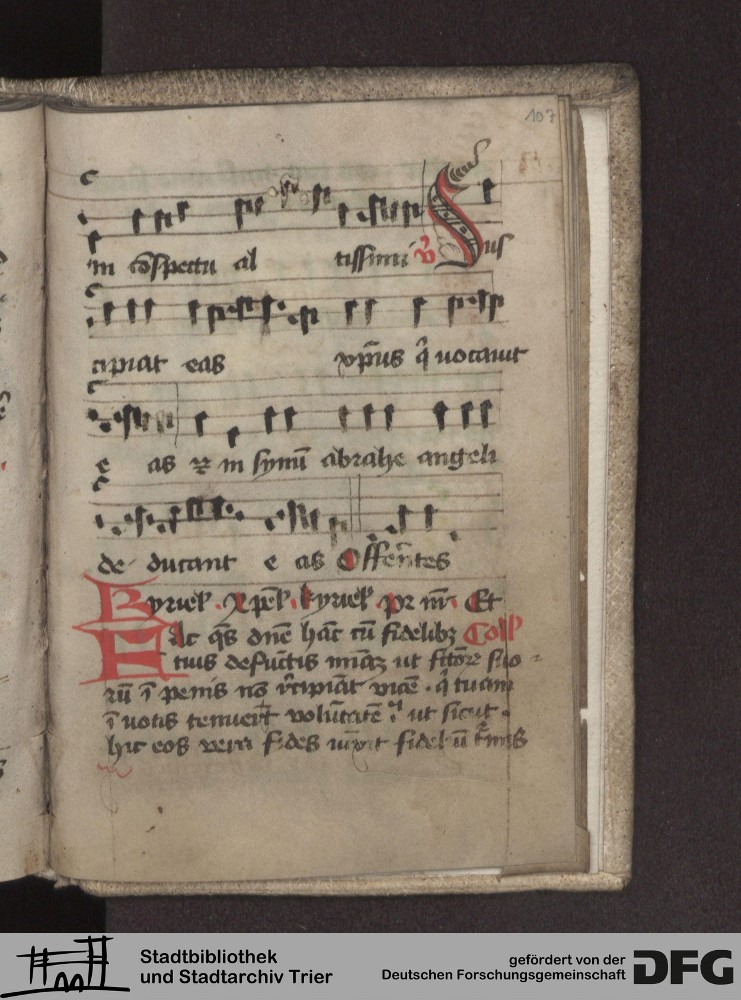 107
in cōspectu al tissimi v̄ Sus
cipiat eas xp̄us q̄ uocauit
e as ꝶ in synū abrahe angeli
de ducant e as Offerētes
Kyriel̕ . Xpel̕ . kyriel̕ . pr nr̄ . Et
Fac q̄s dn̄e hāc cū fidelibꝫ Coll̕
tuis defūctis mīaꝫ ut fctōꝝ suo
rū ī penis nō rēcipiāt vicē . q̄ tuam
ī uotis tenuert̄ volūtatē ut sicut
hic eos vera fides iūxit fideliū t̄mis
Stadtbibliothek
und Stadtarchiv Trier
gefördert von der
Deutschen Forschungsgemeinschaft
DFG